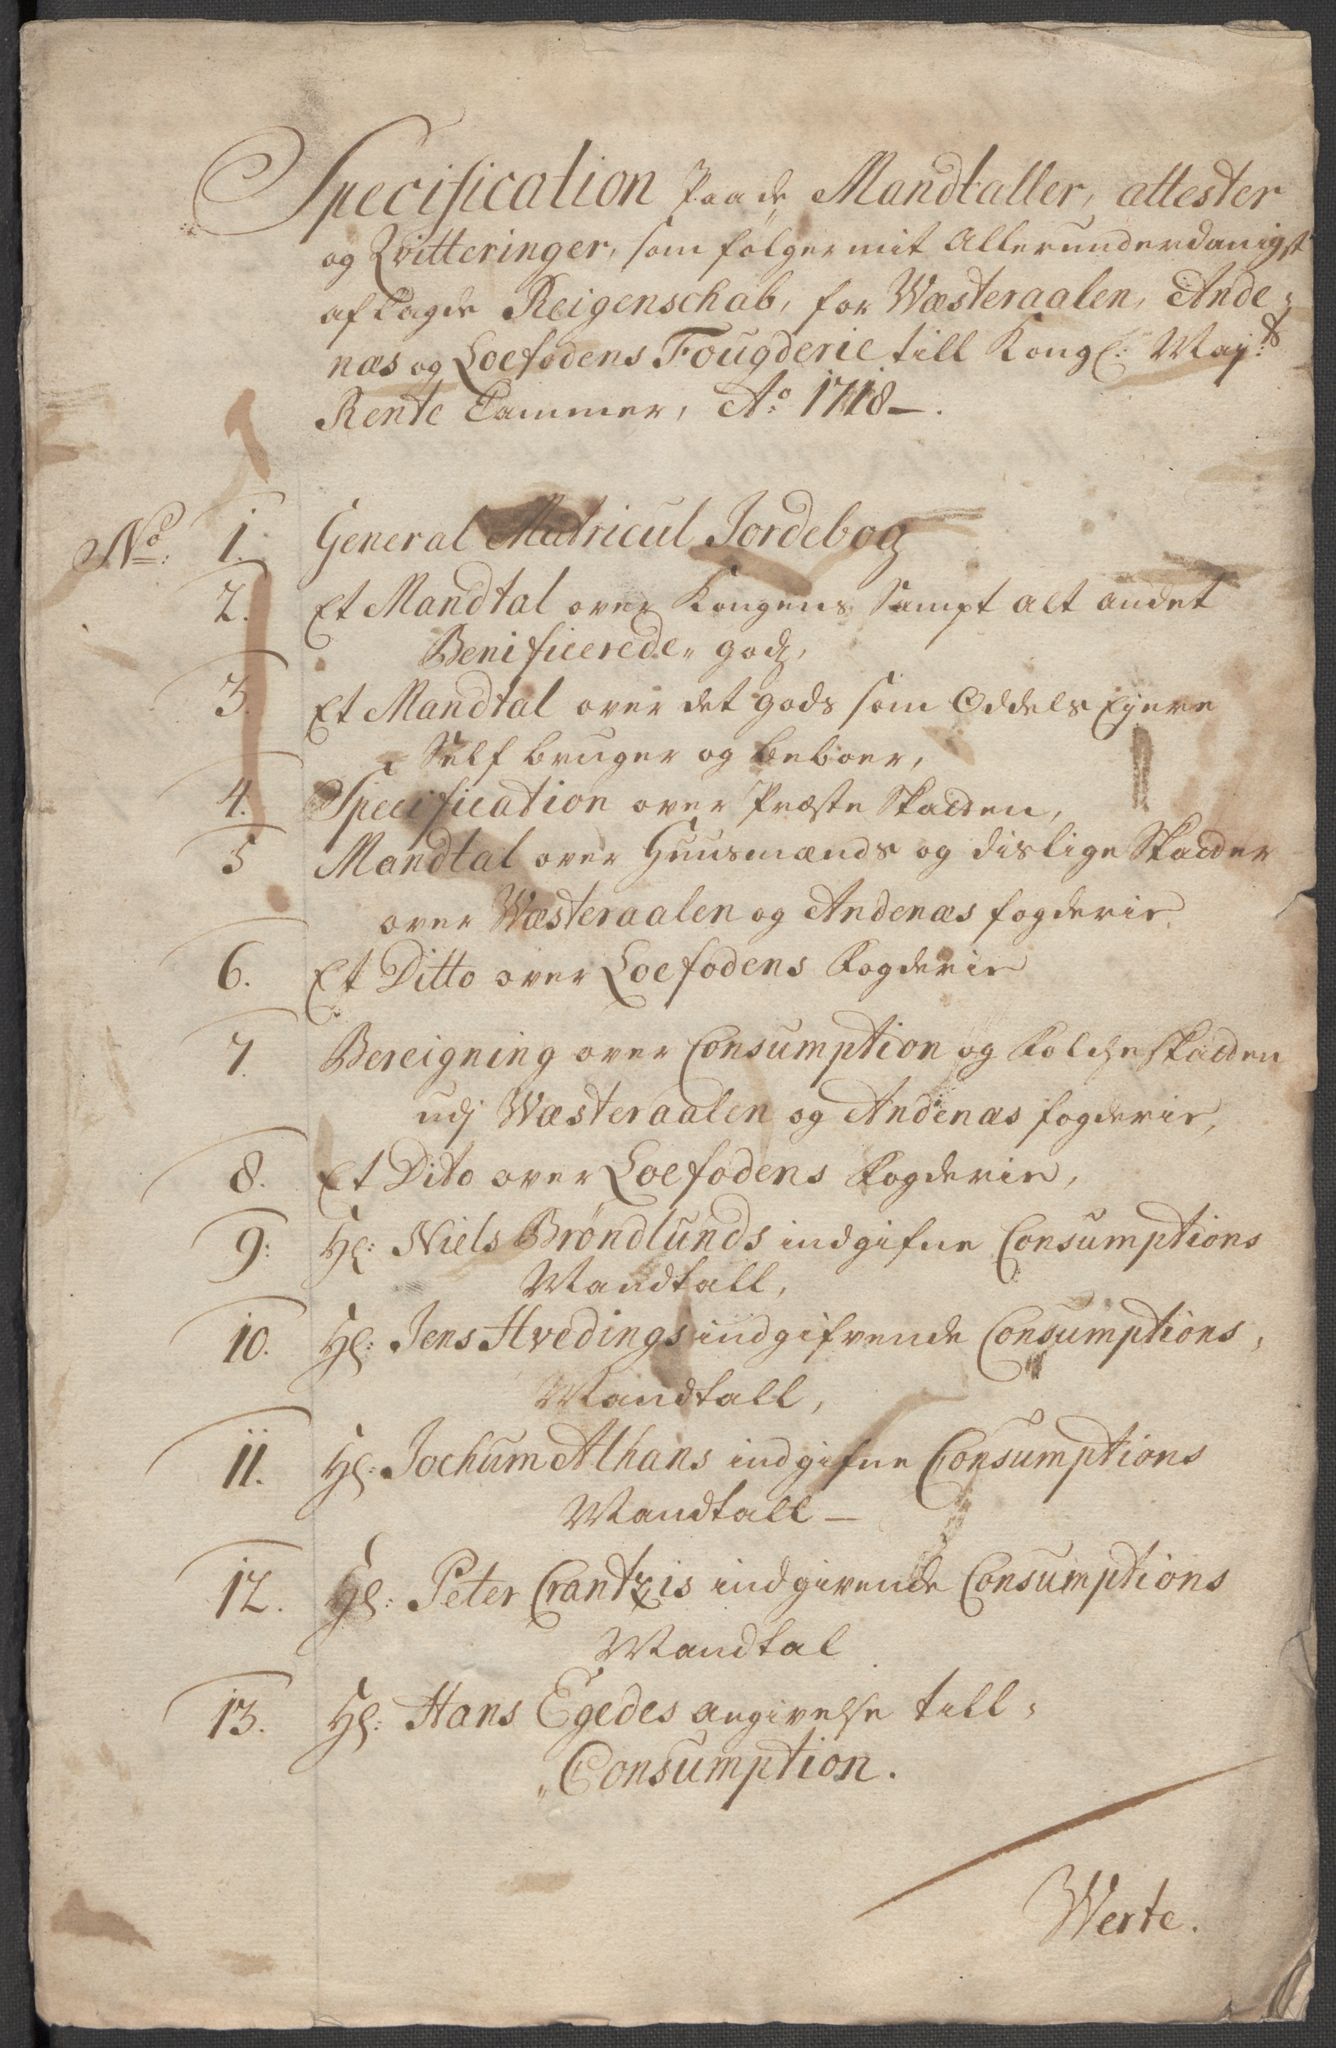 Specification Paa de, Mandtaller, attester
og Qvitteringer, som følger mit Allerunderdanigst
aflagde Reigenschab, for Wæsteraalen, Ande-
næs og Loefodens Fougderie till Kongl: May:ts
Rente Cammer, Ao 1718 -.
No: 1. General Matricul Jordebog
2. Et Mandtal over Kongens Sampt alt andet
Benificerede godz,
3. Et Mandtal over det gods som Oddels Ejere
Self bruger og beboer,
4. Specification over Præste Skatten,
5 Mandtal over Huusmænds og dislige Skatter
over Wæsteraalen og Andenæs fogderie.
6. Et Ditto over Loefodens Fogderie
7. Bereigning over Consumption og Folcheskatten
udj Wæsteraalen og Andenæs fogderie,
8. Et Dito over Loefodens Fogderie,
9: Hl: Niels Bröndlunds indgifne Consumptions
Mandtall,
10. Hl: Jens Hvedings indgifvende Consumptions,
Mandtall,
11. Hl: Jochum Althans indgifne Consumptions
Mandtall -
12. Hl: Peter Crantzis indgivende Consumptions
Mandtal
13. Hl: Hans Egedes angivelse till,
Consumption.
Werte.